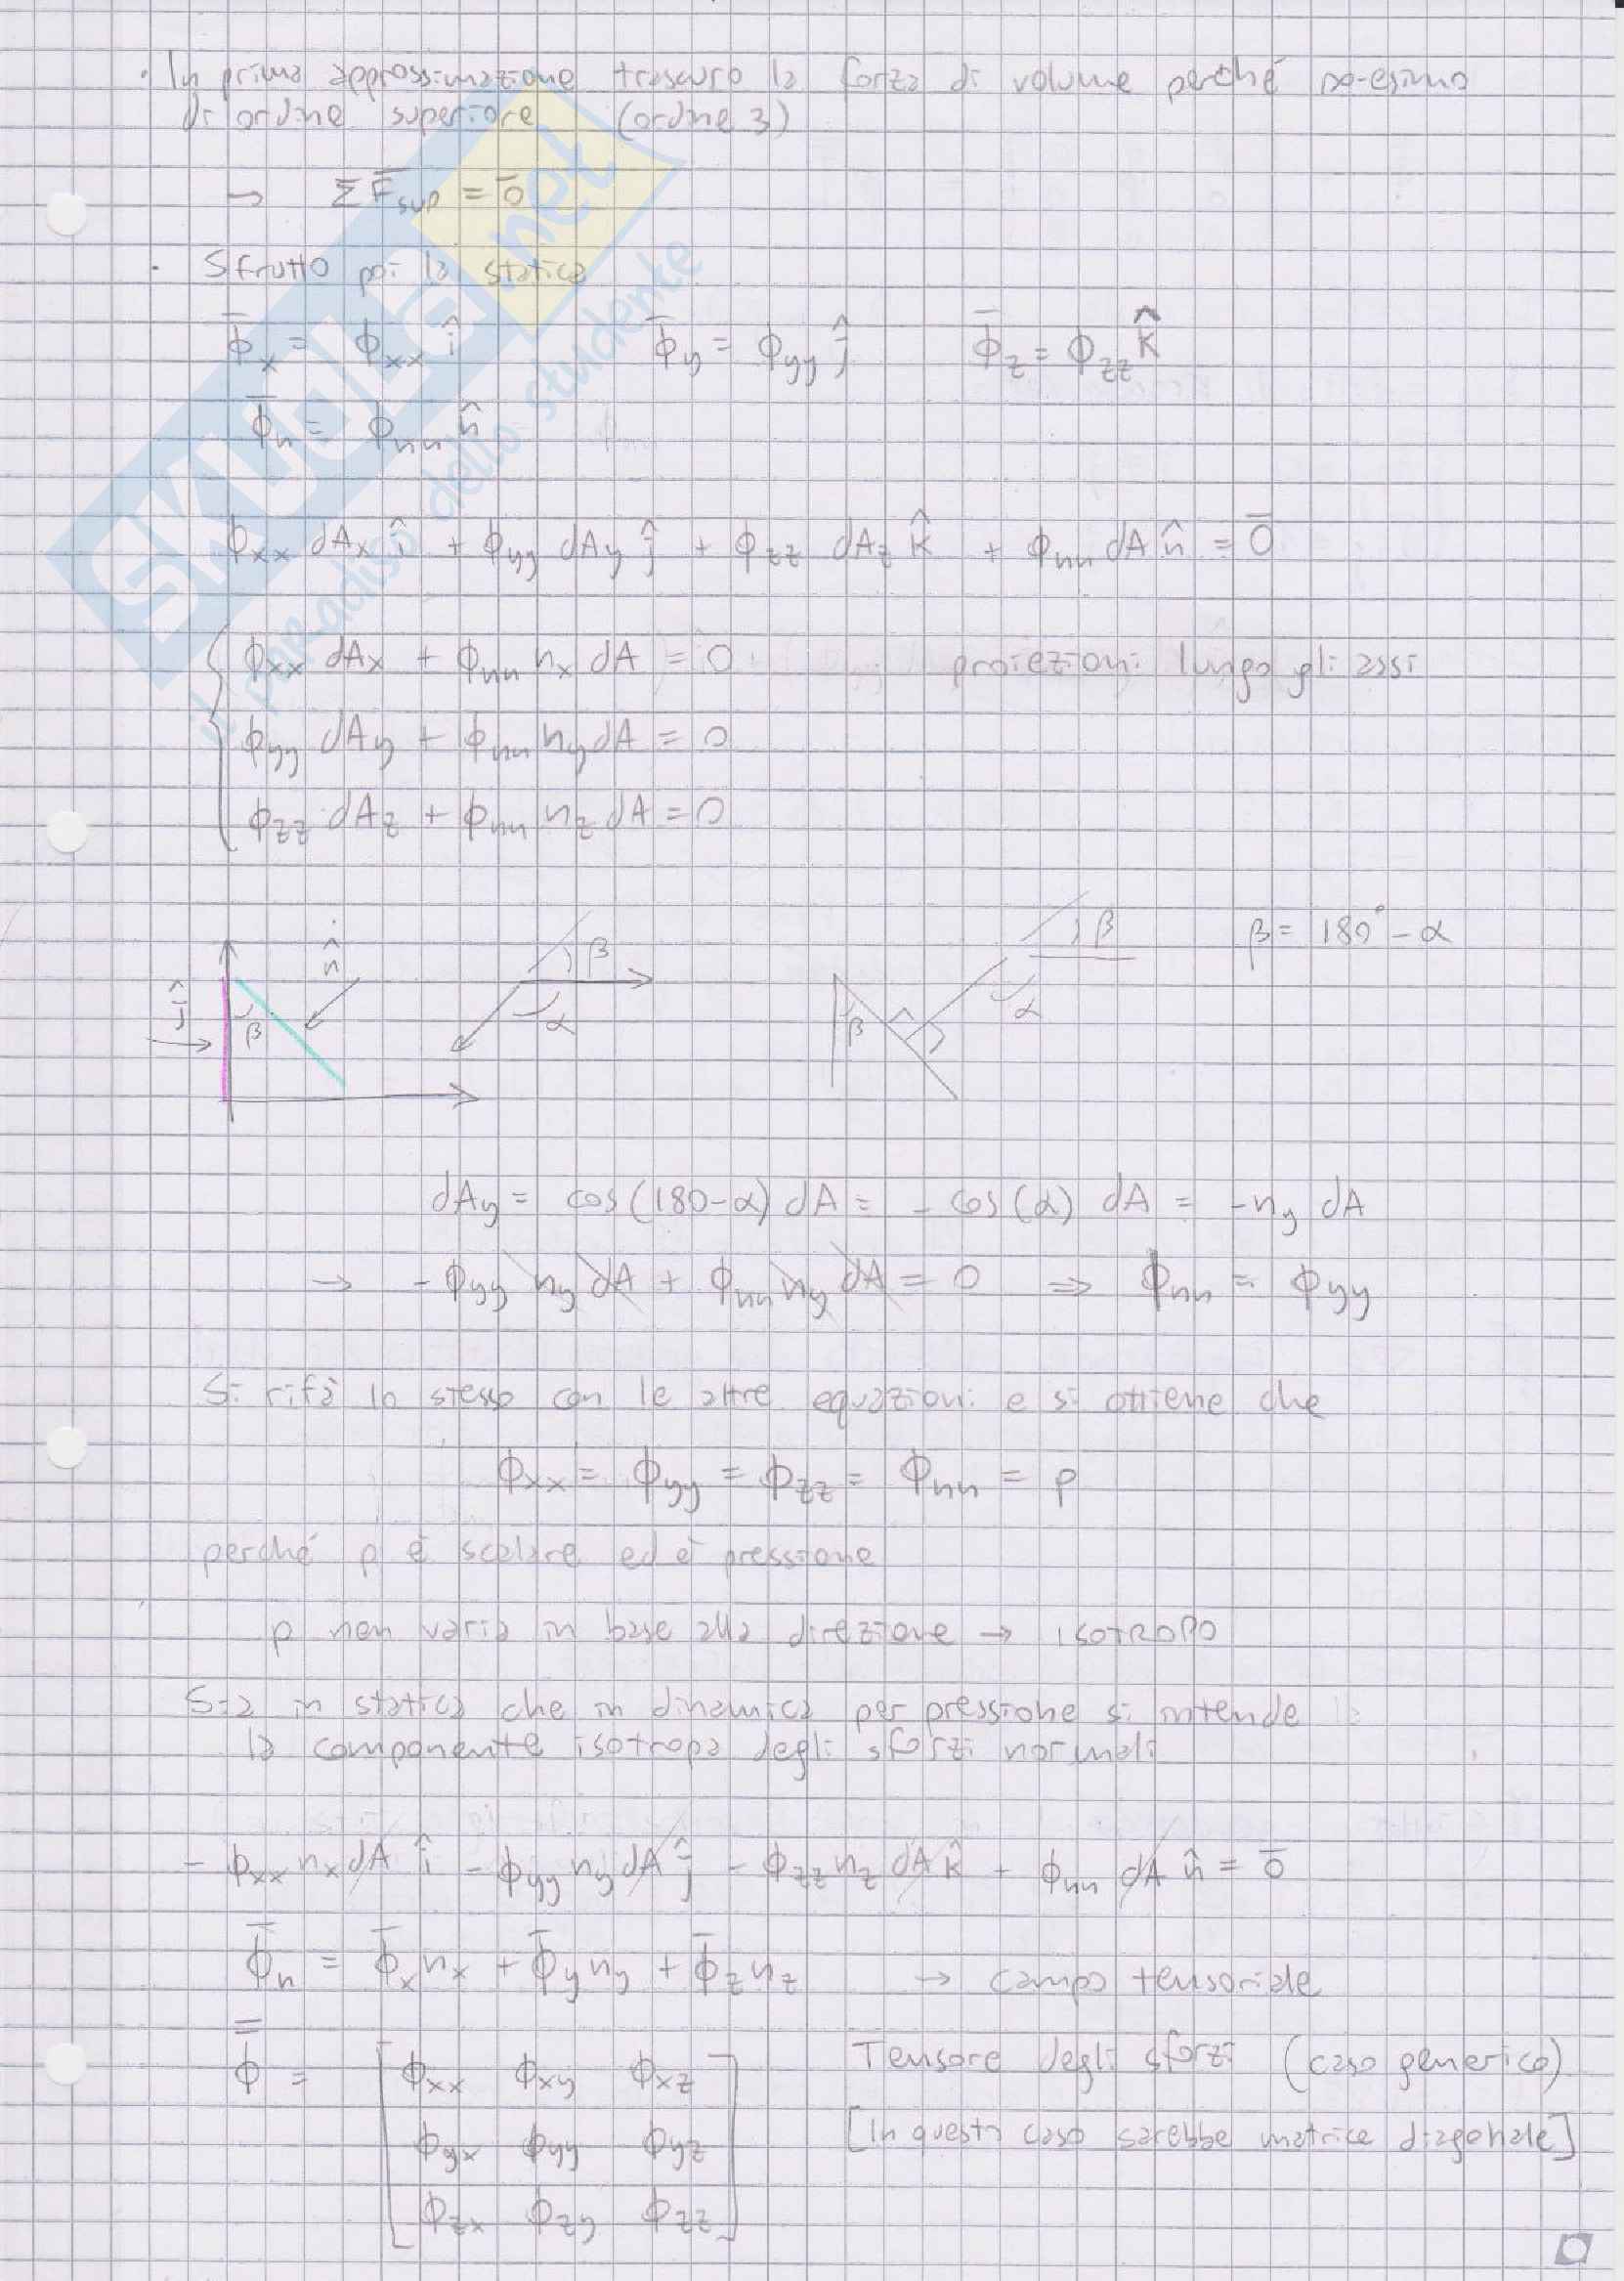 · In prima approssimazione trascuro la forza di volume perché ∞-esimo
di ordine superiore (ordine 3)
→ Σ F̄sup = 0̄
· Sfrutto poi la statica
ϕ̄x = ϕxx î ϕ̄y = ϕyy ĵ ϕ̄z = ϕzz k̂
ϕ̄n = ϕnn n̂
ϕxx dAx î + ϕyy dAy ĵ + ϕzz dAz k̂ + ϕnn dA n̂ = 0̄
ϕxx dAx + ϕnn nx dA = 0 proiezioni lungo gli assi
ϕyy dAy + ϕnn ny dA = 0
ϕzz dAz + ϕnn nz dA = 0
ĵ β n̂ β α β β α β = 180° - α
dAy = cos(180-α) dA = - cos(α) dA = -ny dA
→ - ϕyy ny dA + ϕnn ny dA = 0 ⇒ ϕnn = ϕyy
Si rifà lo stesso con le altre equazioni e si ottiene che
ϕxx = ϕyy = ϕzz = ϕnn = p
perché p è scalare ed è pressione
p non varia in base alla direzione → ISOTROPO
Sia in statica che in dinamica per pressione si intende
la componente isotropa degli sforzi normali
- ϕxx nx dA î - ϕyy ny dA ĵ - ϕzz nz dA k̂ + ϕnn dA n̂ = 0̄
ϕ̄n = ϕ̄x nx + ϕ̄y ny + ϕ̄z nz → campo tensoriale
ϕ̿ = [ϕxx ϕxy ϕxz Tensore degli sforzi (caso generico)
ϕyx ϕyy ϕyz [In questo caso sarebbe matrice diagonale]
ϕzx ϕzy ϕzz]
SKUOLA.net
il paradiso dello studente